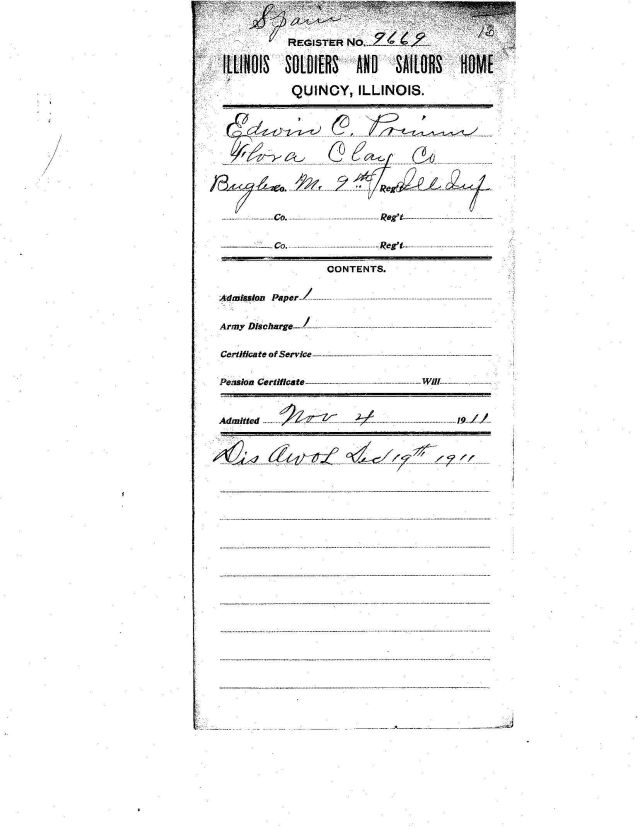 Spain
13
REGISTER NO. 9669
ILLINOIS SOLDIERS AND SAILORS HOME
QUINCY, ILLINOIS.
Edwin C. Primm
Flora Clay Co
Bugler Co. M. 9th Reg't Ill Inf
Co. Reg't
Co. Reg't
CONTENTS.
Admission Paper 1
Army Discharge 1
Certificate of Service
Pension Certificate Will
Admitted Nov 4 1911
Dis Awol Dec 19th 1911